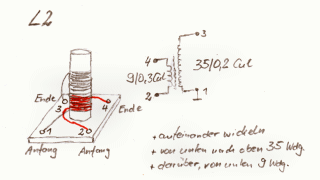 L2
3
4
35/0,2 CuL
9/0,3CuL
2
1
Ende
3
4
Ende
1
2
Anfang
Anfang
+ aufeinander wickeln
+ von unten nach oben 35 Wdg.
+ darüber, von unten 9 Wdg.